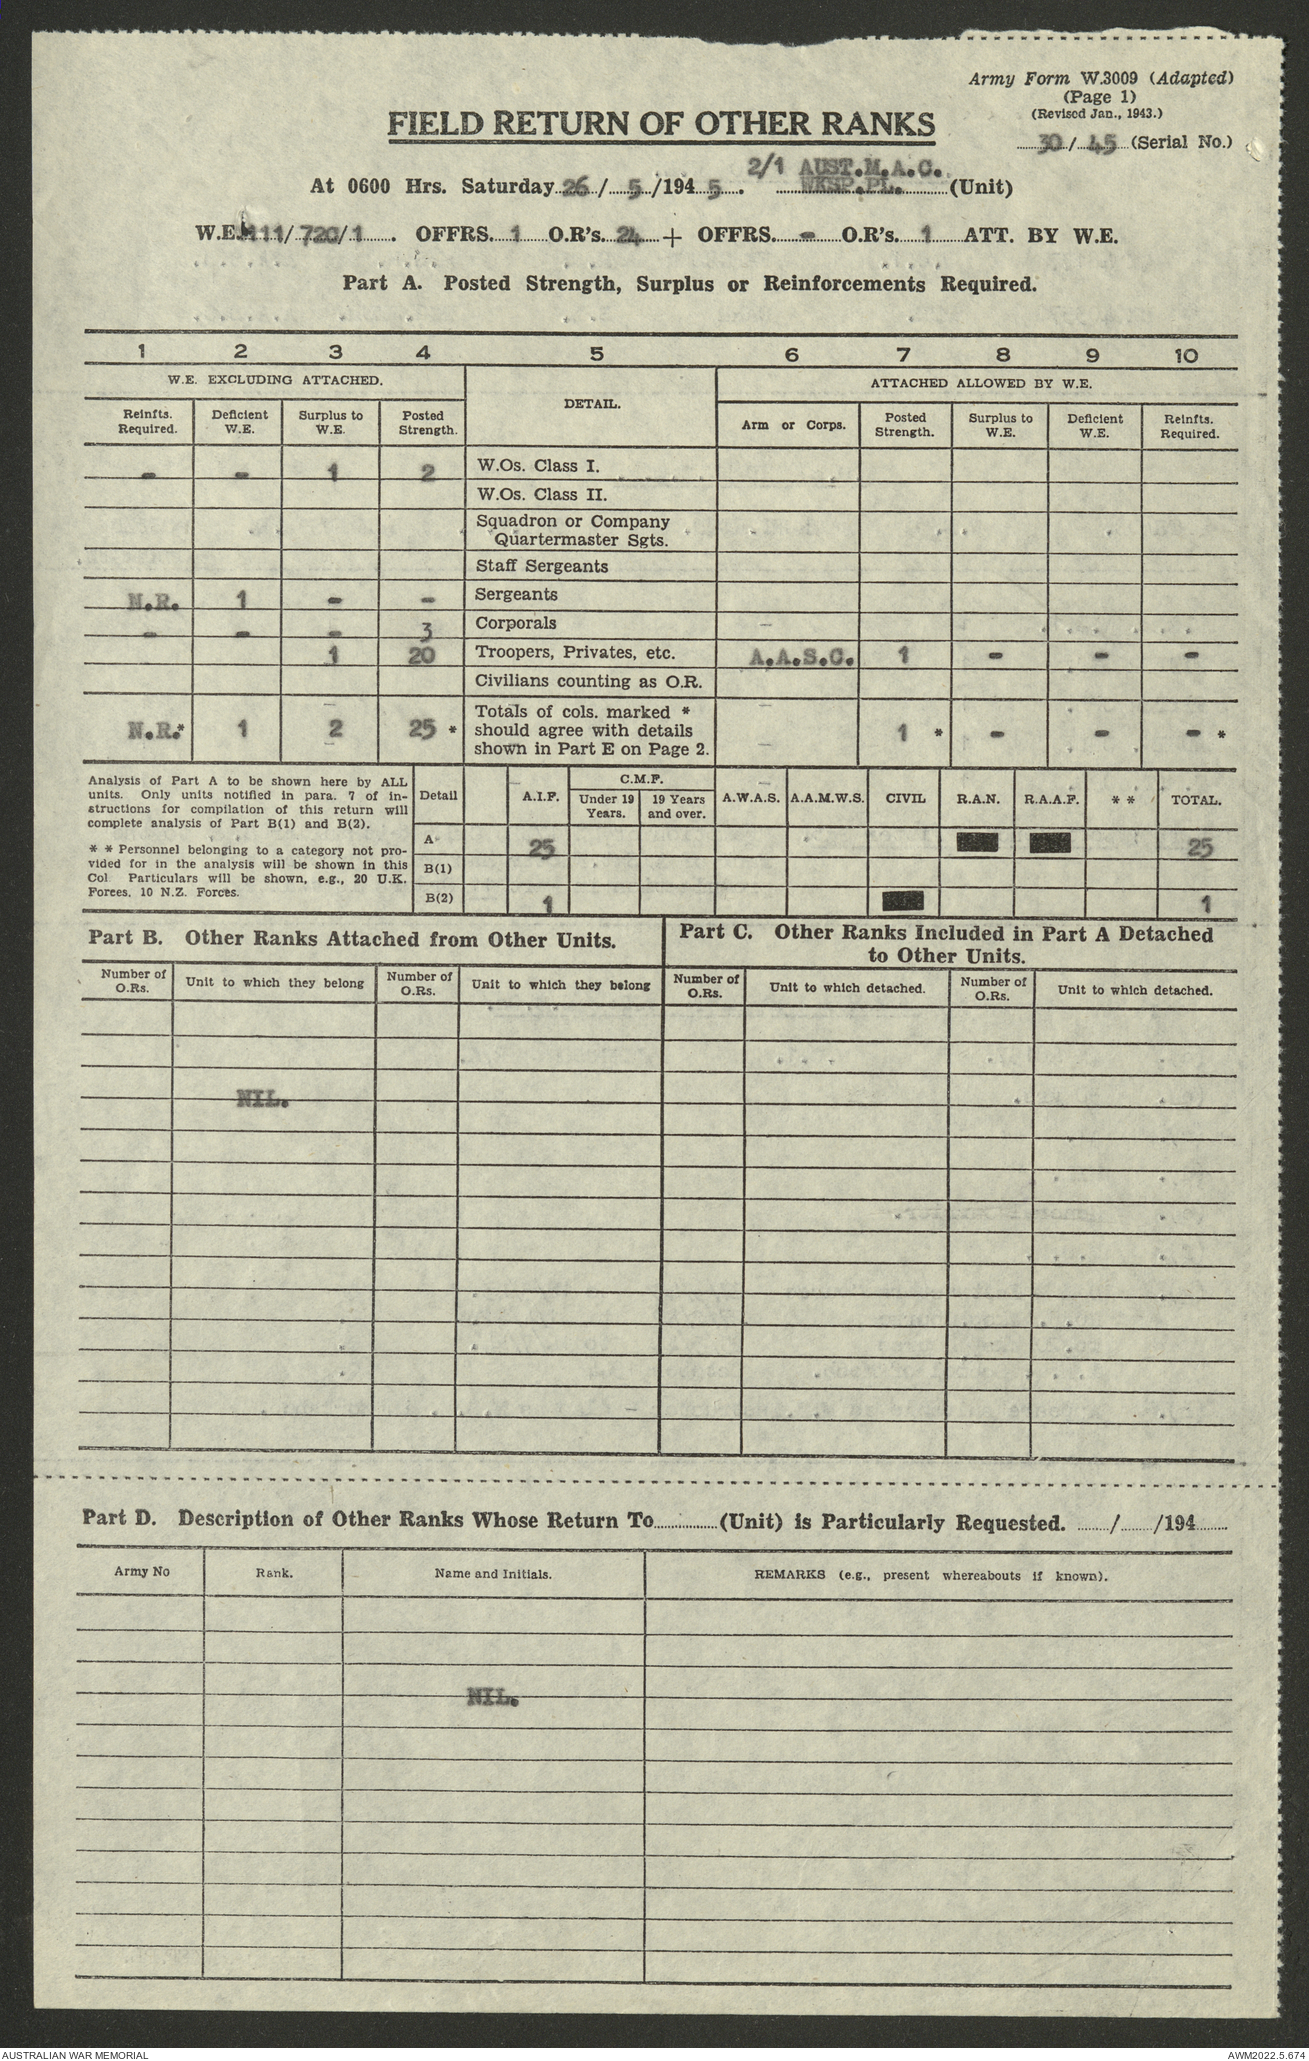 Army Form W.3009 (Adapted)
(Page 1)
(Revised Jan., 1943.)
30/45 (Serial No.)
FIELD RETURN OF OTHER RANKS
2/1 AUST.M.A.C.
At 0600 Hrs. Saturday 26/5/1945. WKSP.PL. (Unit)
W.E. 111/72C/1. OFFRS. 1 O.R's. 24 + OFFRS. - O.R's. 1 ATT. BY W.E.
Part A. Posted Strength, Surplus or Reinforcements Required.
1 2 3 4 5 6 7 8 9 10
W.E. EXCLUDING ATTACHED. DETAIL. ATTACHED ALLOWED BY W.E.
Reinfts. Required. Deficient W.E. Surplus to W.E. Posted Strength. Arm or Corps. Posted Strength. Surplus to W.E. Deficient W.E. Reinfts. Required.
- - 1 2 W.Os. Class I.
W.Os. Class II.
Squadron or Company
Quartermaster Sgts.
Staff Sergeants
N.R. 1 - - Sergeants
- - - 3 Corporals
1 20 Troopers, Privates, etc. A.A.S.C. 1 - - -
Civilians counting as O.R.
Totals of cols. marked *
N.R.* 1 2 25 * should agree with details 1 * - - - *
shown in Part E on Page 2.
Analysis of Part A to be shown here by ALL
units. Only units notified in para. 7 of in-
structions for compilation of this return will
complete analysis of Part B(1) and B(2).
* * Personnel belonging to a category not pro-
vided for in the analysis will be shown in this
Col Particulars will be shown, e.g., 20 U.K.
Forces, 10 N.Z. Forces.
Detail A.I.F. C.M.F. Under 19 Years. 19 Years and over. A.W.A.S. A.A.M.W.S. CIVIL R.A.N. R.A.A.F. * * TOTAL.
A 25 25
B(1)
B(2) 1 1
Part B. Other Ranks Attached from Other Units.
Number of O.Rs. Unit to which they belong Number of O.Rs. Unit to which they belong
NIL.
Part C. Other Ranks Included in Part A Detached
to Other Units.
Number of O.Rs. Unit to which detached. Number of O.Rs. Unit to which detached.
Part D. Description of Other Ranks Whose Return To (Unit) is Particularly Requested. / /194
Army No Rank. Name and Initials. REMARKS (e.g., present whereabouts if known).
NIL.
AUSTRALIAN WAR MEMORIAL AWM2022.5.674